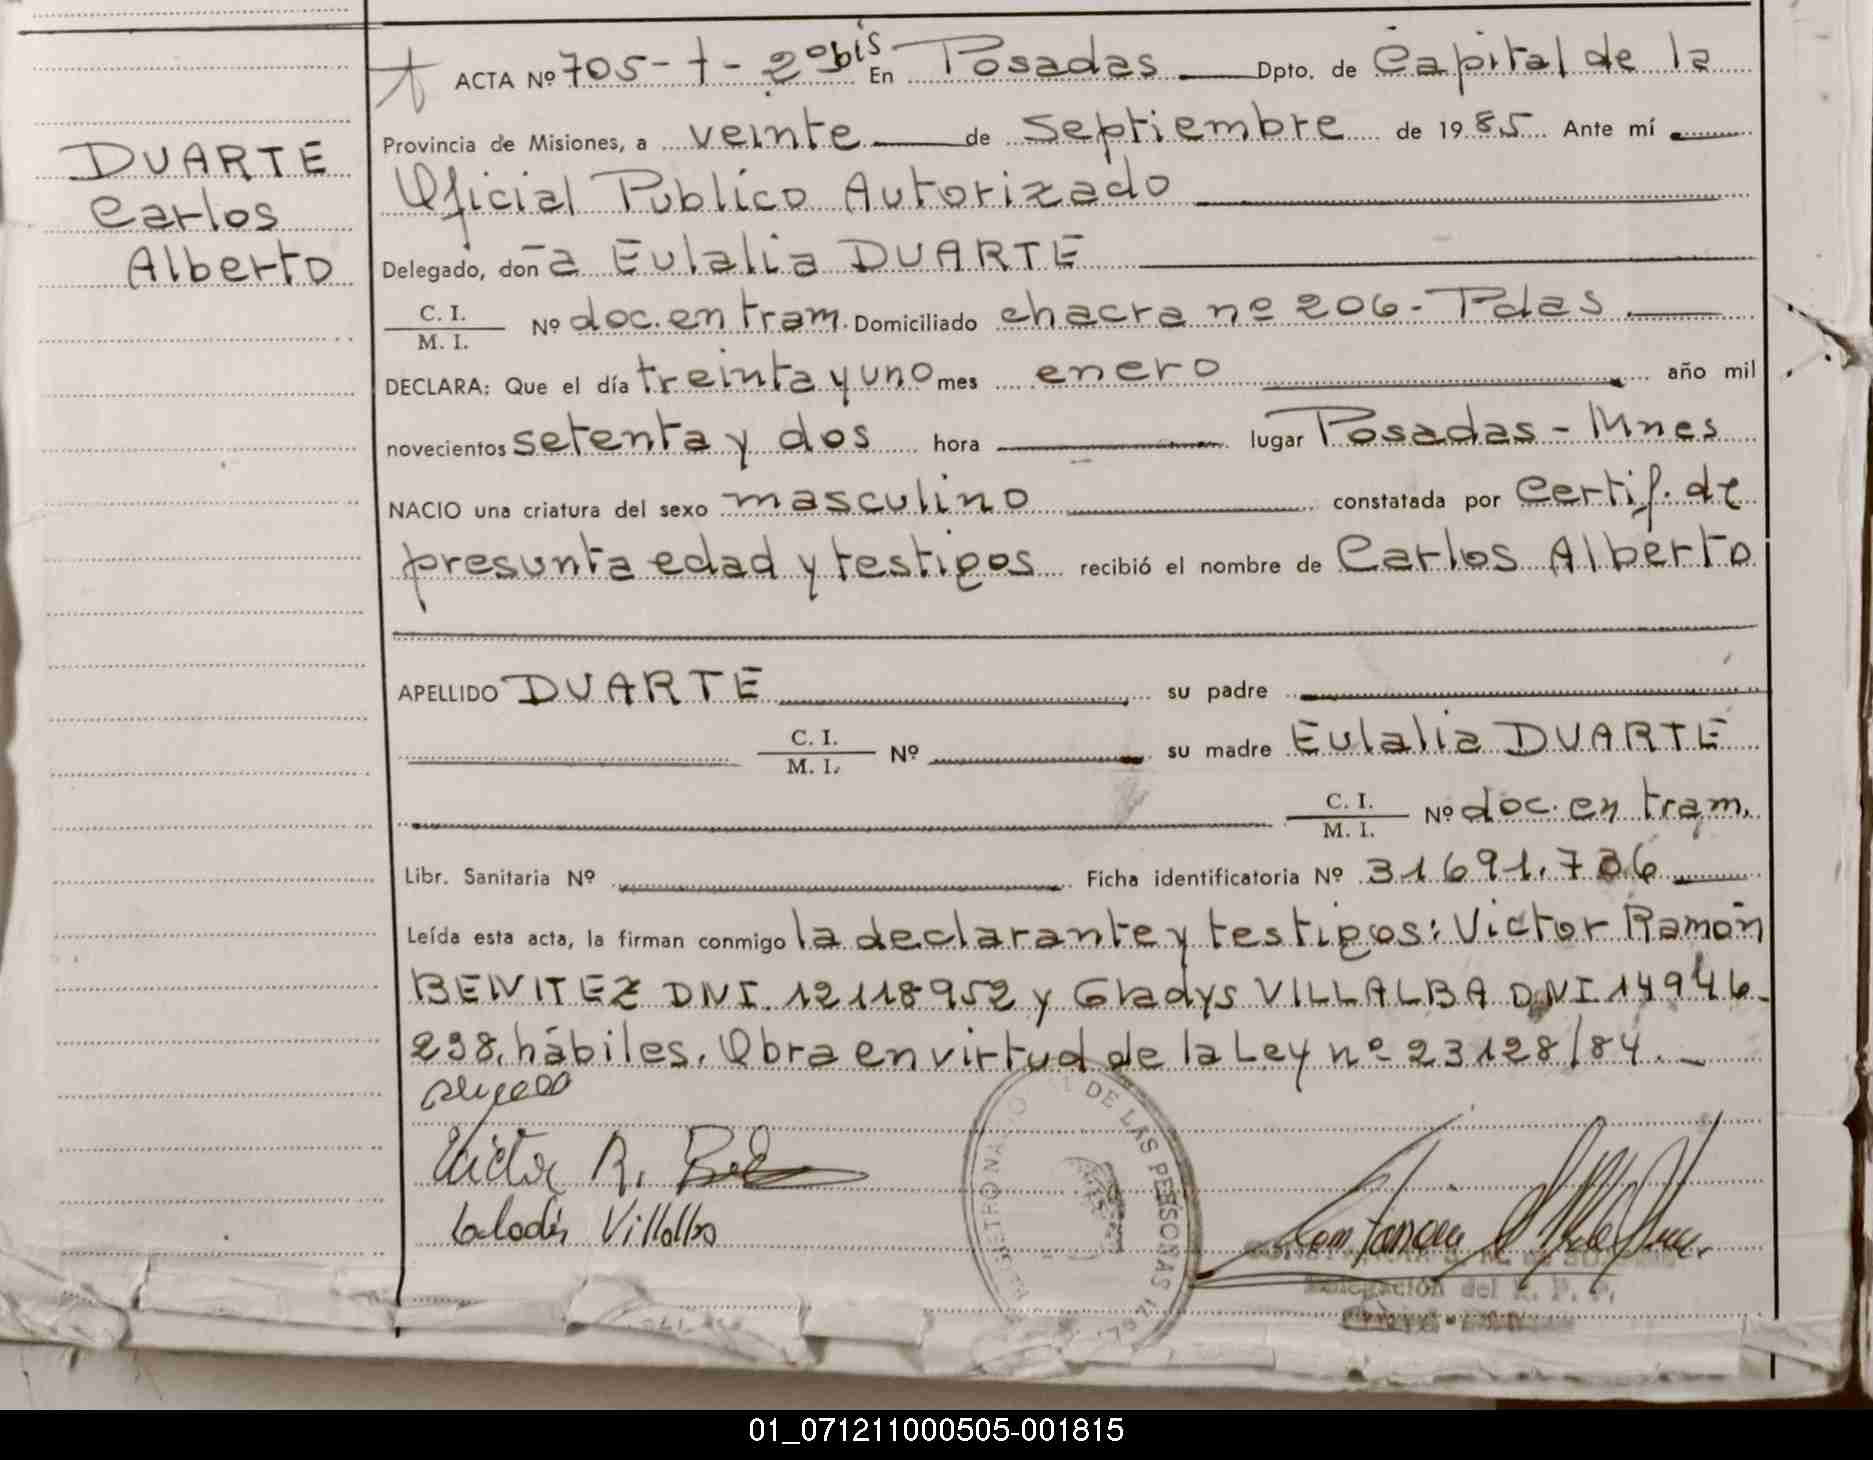 ACTA Nº 705-t-2º bis En Posadas Dpto. de Capital de la
Provincia de Misiones, a veinte de septiembre de 1985 Ante mí
Oficial Publico Autorizado
DUARTE
Carlos
Alberto
Delegado, doña Eulalia DUARTE
C. I.
M. I. Nº doc. en tram. Domiciliado chacra nº 206 - Pdas
DECLARA: Que el día treinta y uno mes enero año mil
novecientos setenta y dos hora lugar Posadas - Mnes
NACIO una criatura del sexo masculino constatada por certif. de
presunta edad y testigos recibió el nombre de Carlos Alberto
APELLIDO DUARTE su padre
C. I.
M. I. Nº su madre Eulalia DUARTE
C. I.
M. I. Nº doc. en tram.
Libr. Sanitaria Nº Ficha identificatoria Nº 31691.736
Leída esta acta, la firman conmigo la declarante y testigos: Victor Ramón
BENITEZ DNI. 12118952 y Gladys VILLALBA DNI. 14946-
238, hábiles. Obra en virtud de la Ley nº 23128/84.
Victor R.
Villalba
DE LAS PERSONAS
Delegación del R. P. P.
01_071211000505-001815